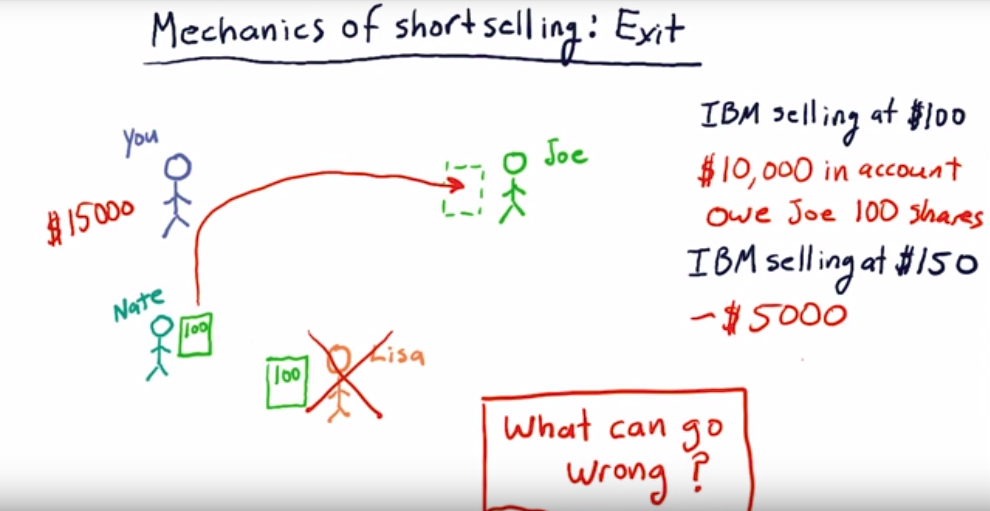 Mechanics of shortselling: Exit
You
$15000
Joe
Nate
100
100
Lisa
IBM selling at $100
$10,000 in account
owe Joe 100 shares
IBM selling at $150
-$5000
What can go
wrong?